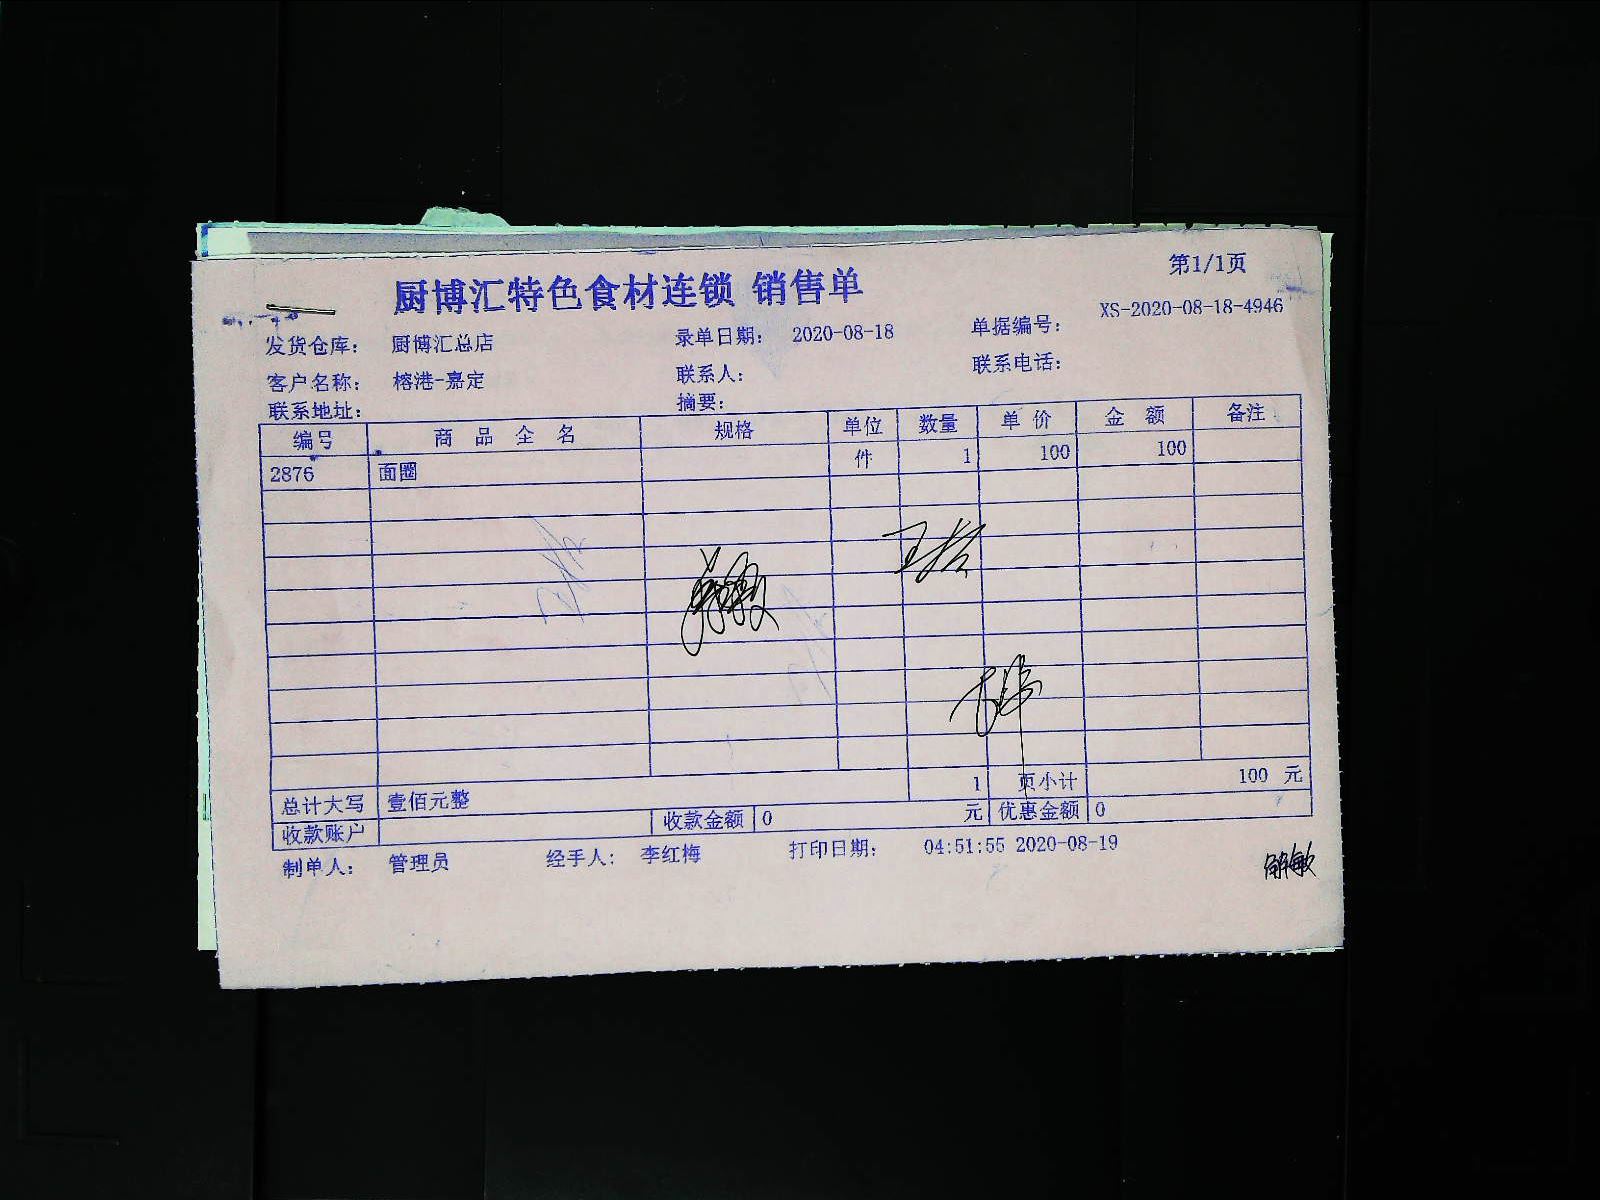 第1/1页
厨博汇特色食材连锁 销售单
发货仓库： 厨博汇总店 录单日期： 2020-08-18 单据编号： XS-2020-08-18-4946
客户名称： 榕港-嘉定 联系人： 联系电话：
联系地址： 摘要：
编号 商品全名 规格 单位 数量 单价 金额 备注
2876 面圈 件 1 100 100
1 页小计 100 元
总计大写 壹佰元整
收款账户 收款金额 0 元 优惠金额 0
制单人： 管理员 经手人： 李红梅 打印日期： 04:51:55 2020-08-19